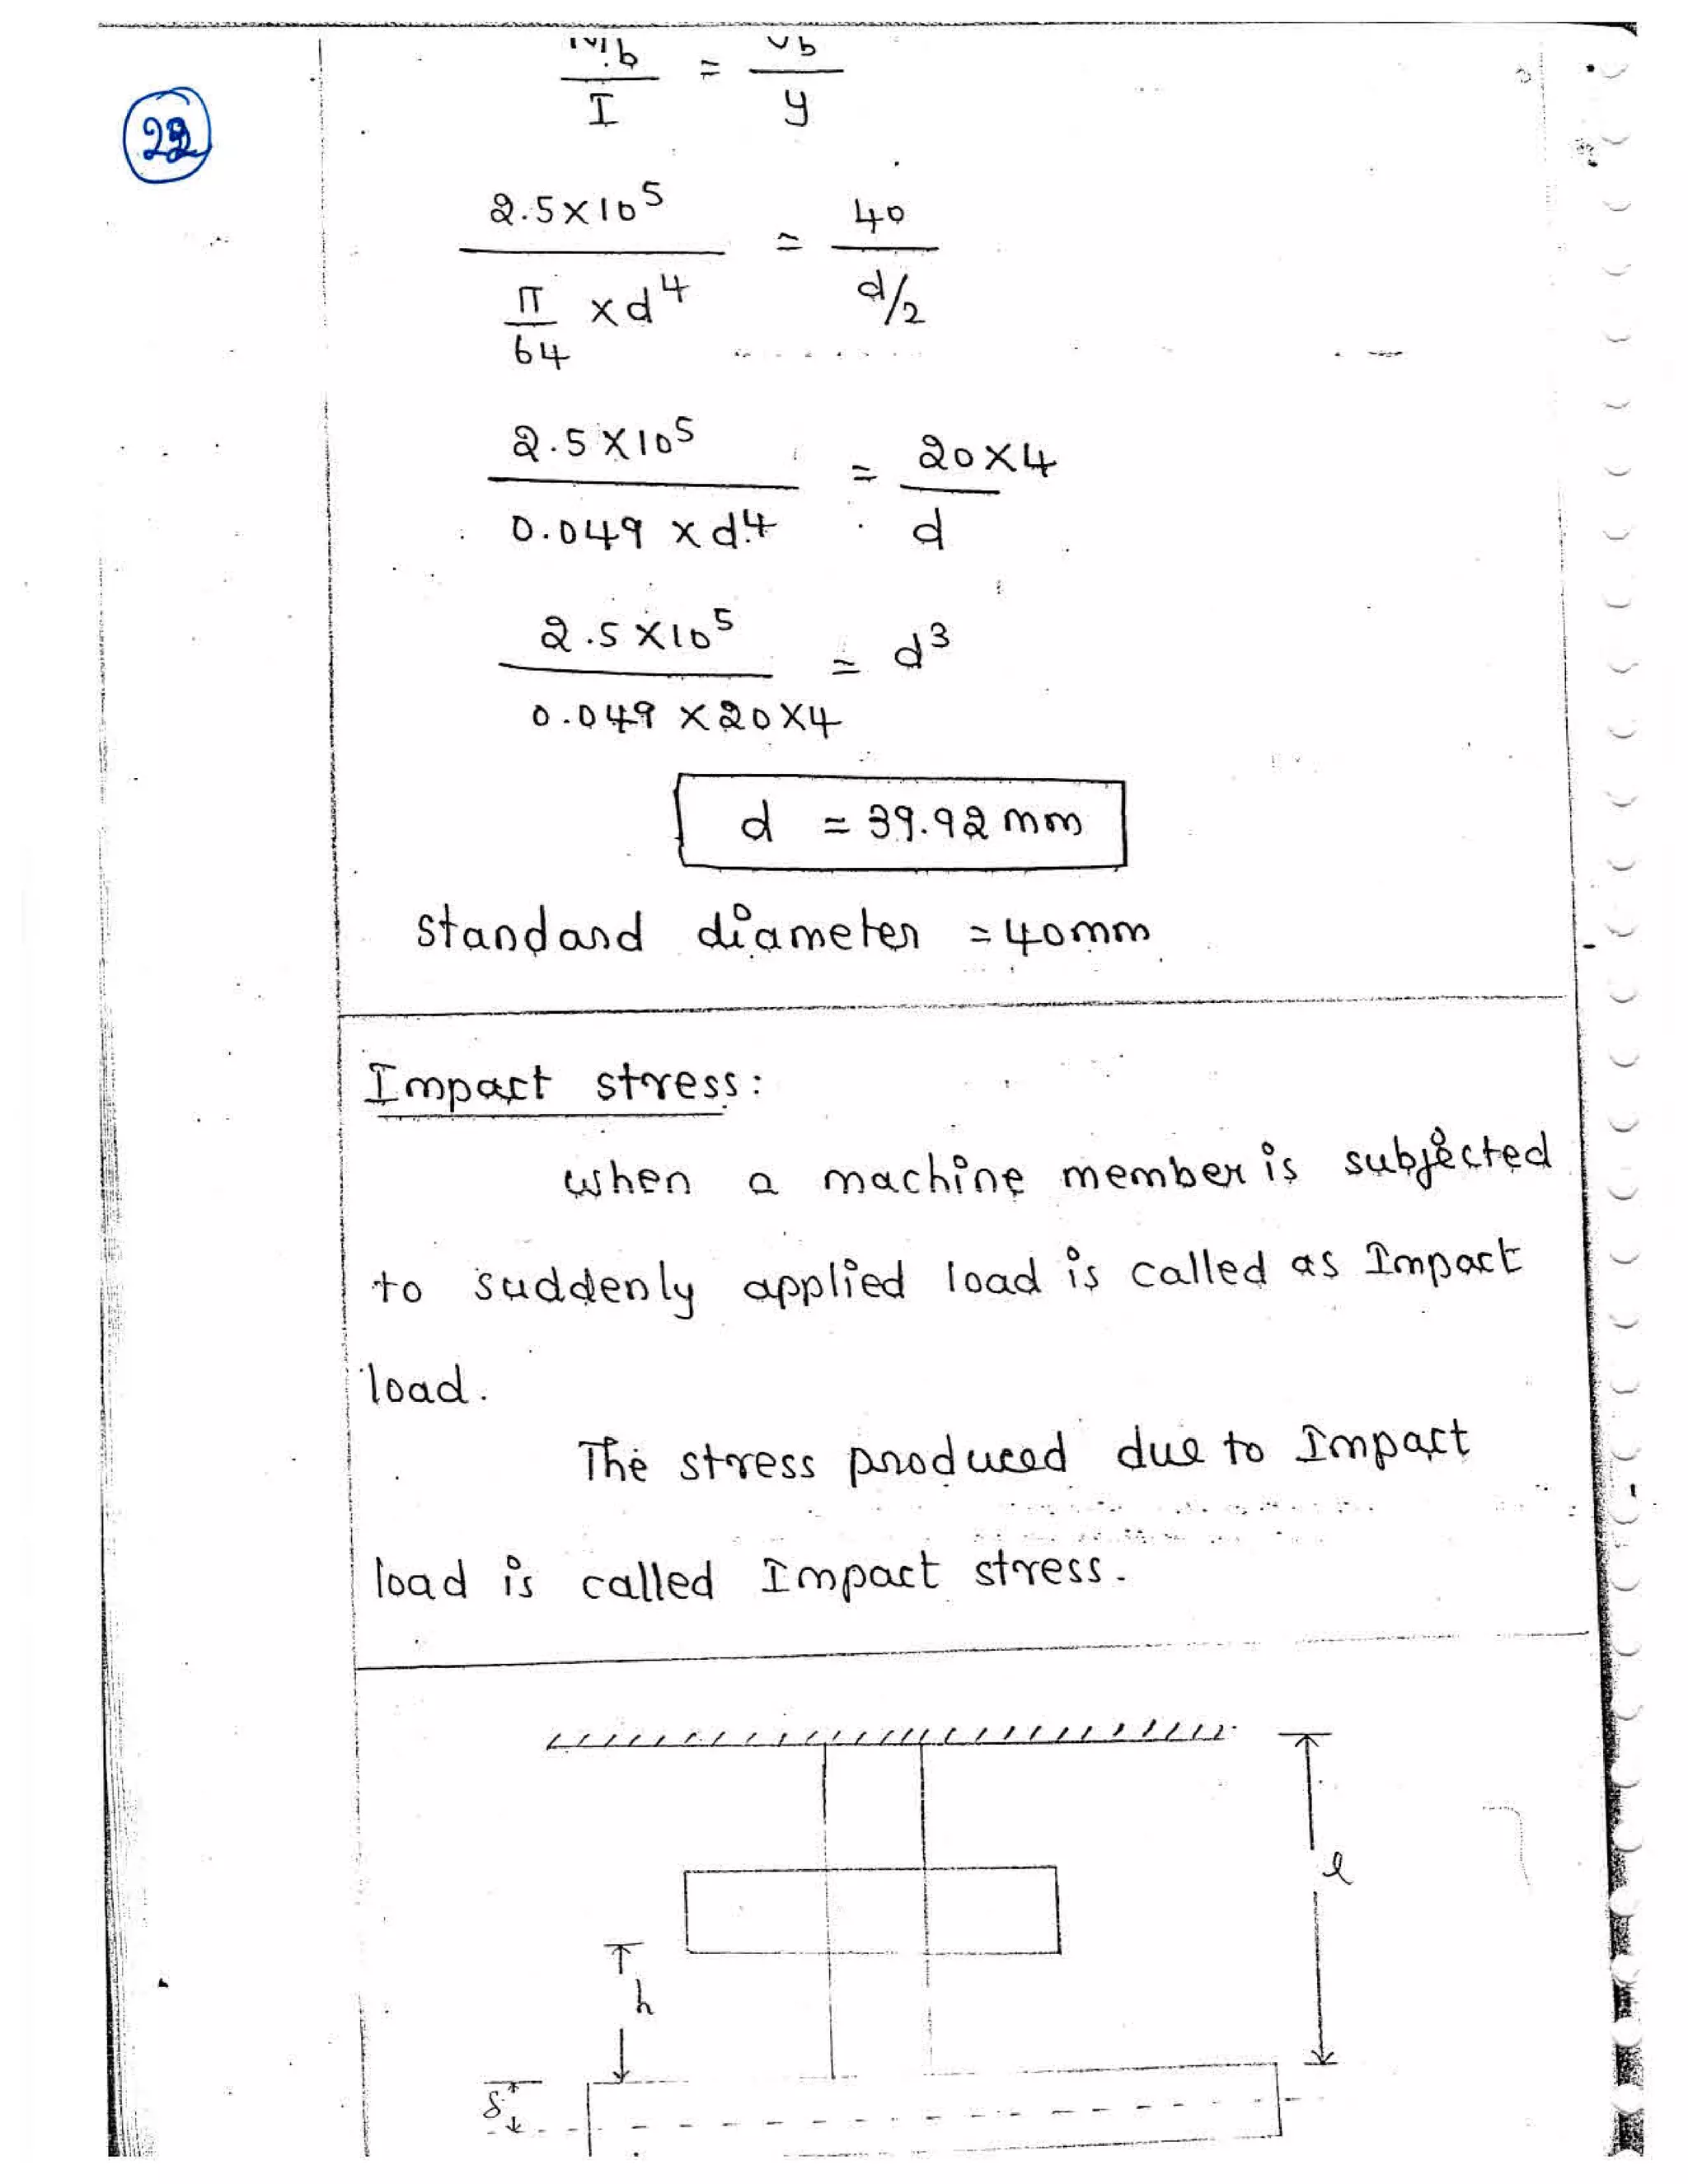 22
Mb/I = σb/y
2.5×10^5 / (π/64 × d^4) = 40 / (d/2)
2.5×10^5 / (0.049 × d^4) = 20×4 / d
2.5×10^5 / (0.049×20×4) = d^3
d = 39.92 mm
standard diameter = 40mm
Impact stress:
when a machine member is subjected
to suddenly applied load is called as Impact
load.
The stress produced due to Impact
load is called Impact stress.
l
h
δ